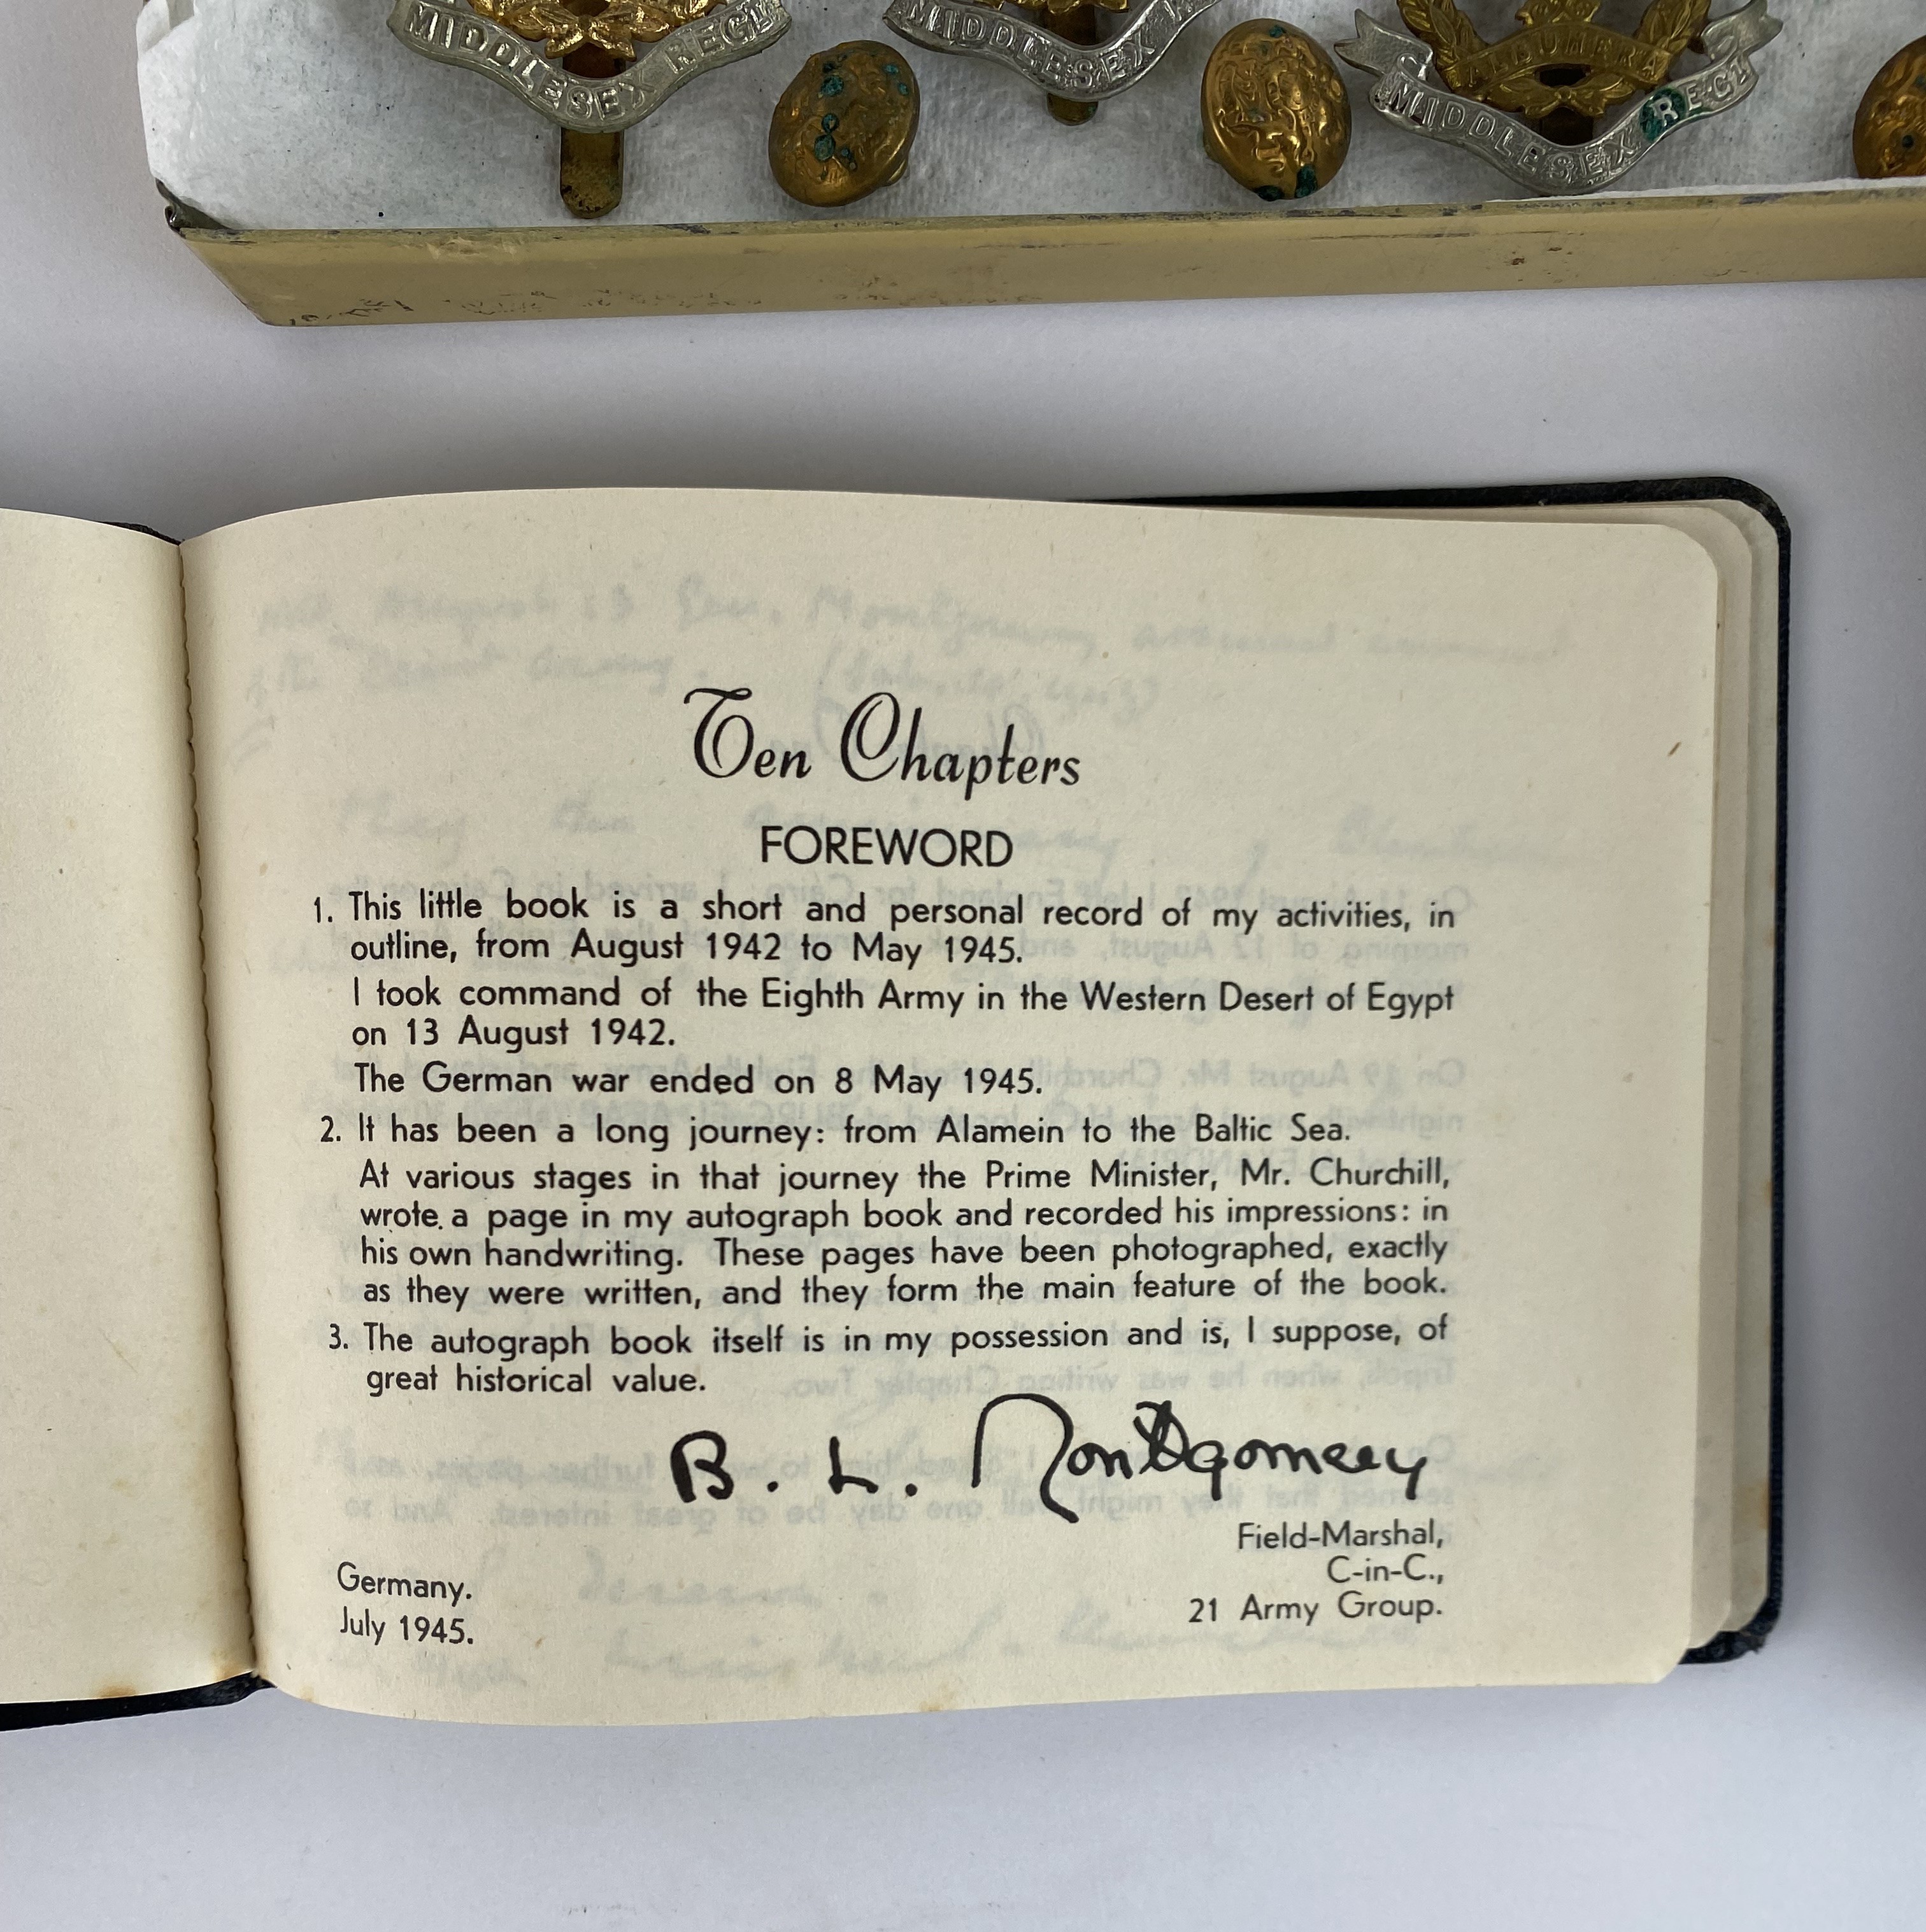 MIDDLESEX REGT
MIDDLESEX
ALBUHERA
MIDDLESEX REGT
Ten Chapters
FOREWORD
1. This little book is a short and personal record of my activities, in
outline, from August 1942 to May 1945.
I took command of the Eighth Army in the Western Desert of Egypt
on 13 August 1942.
The German war ended on 8 May 1945.
2. It has been a long journey: from Alamein to the Baltic Sea.
At various stages in that journey the Prime Minister, Mr. Churchill,
wrote a page in my autograph book and recorded his impressions: in
his own handwriting. These pages have been photographed, exactly
as they were written, and they form the main feature of the book.
3. The autograph book itself is in my possession and is, I suppose, of
great historical value.
B. L. Montgomery
Field-Marshal,
C-in-C.,
21 Army Group.
Germany.
July 1945.